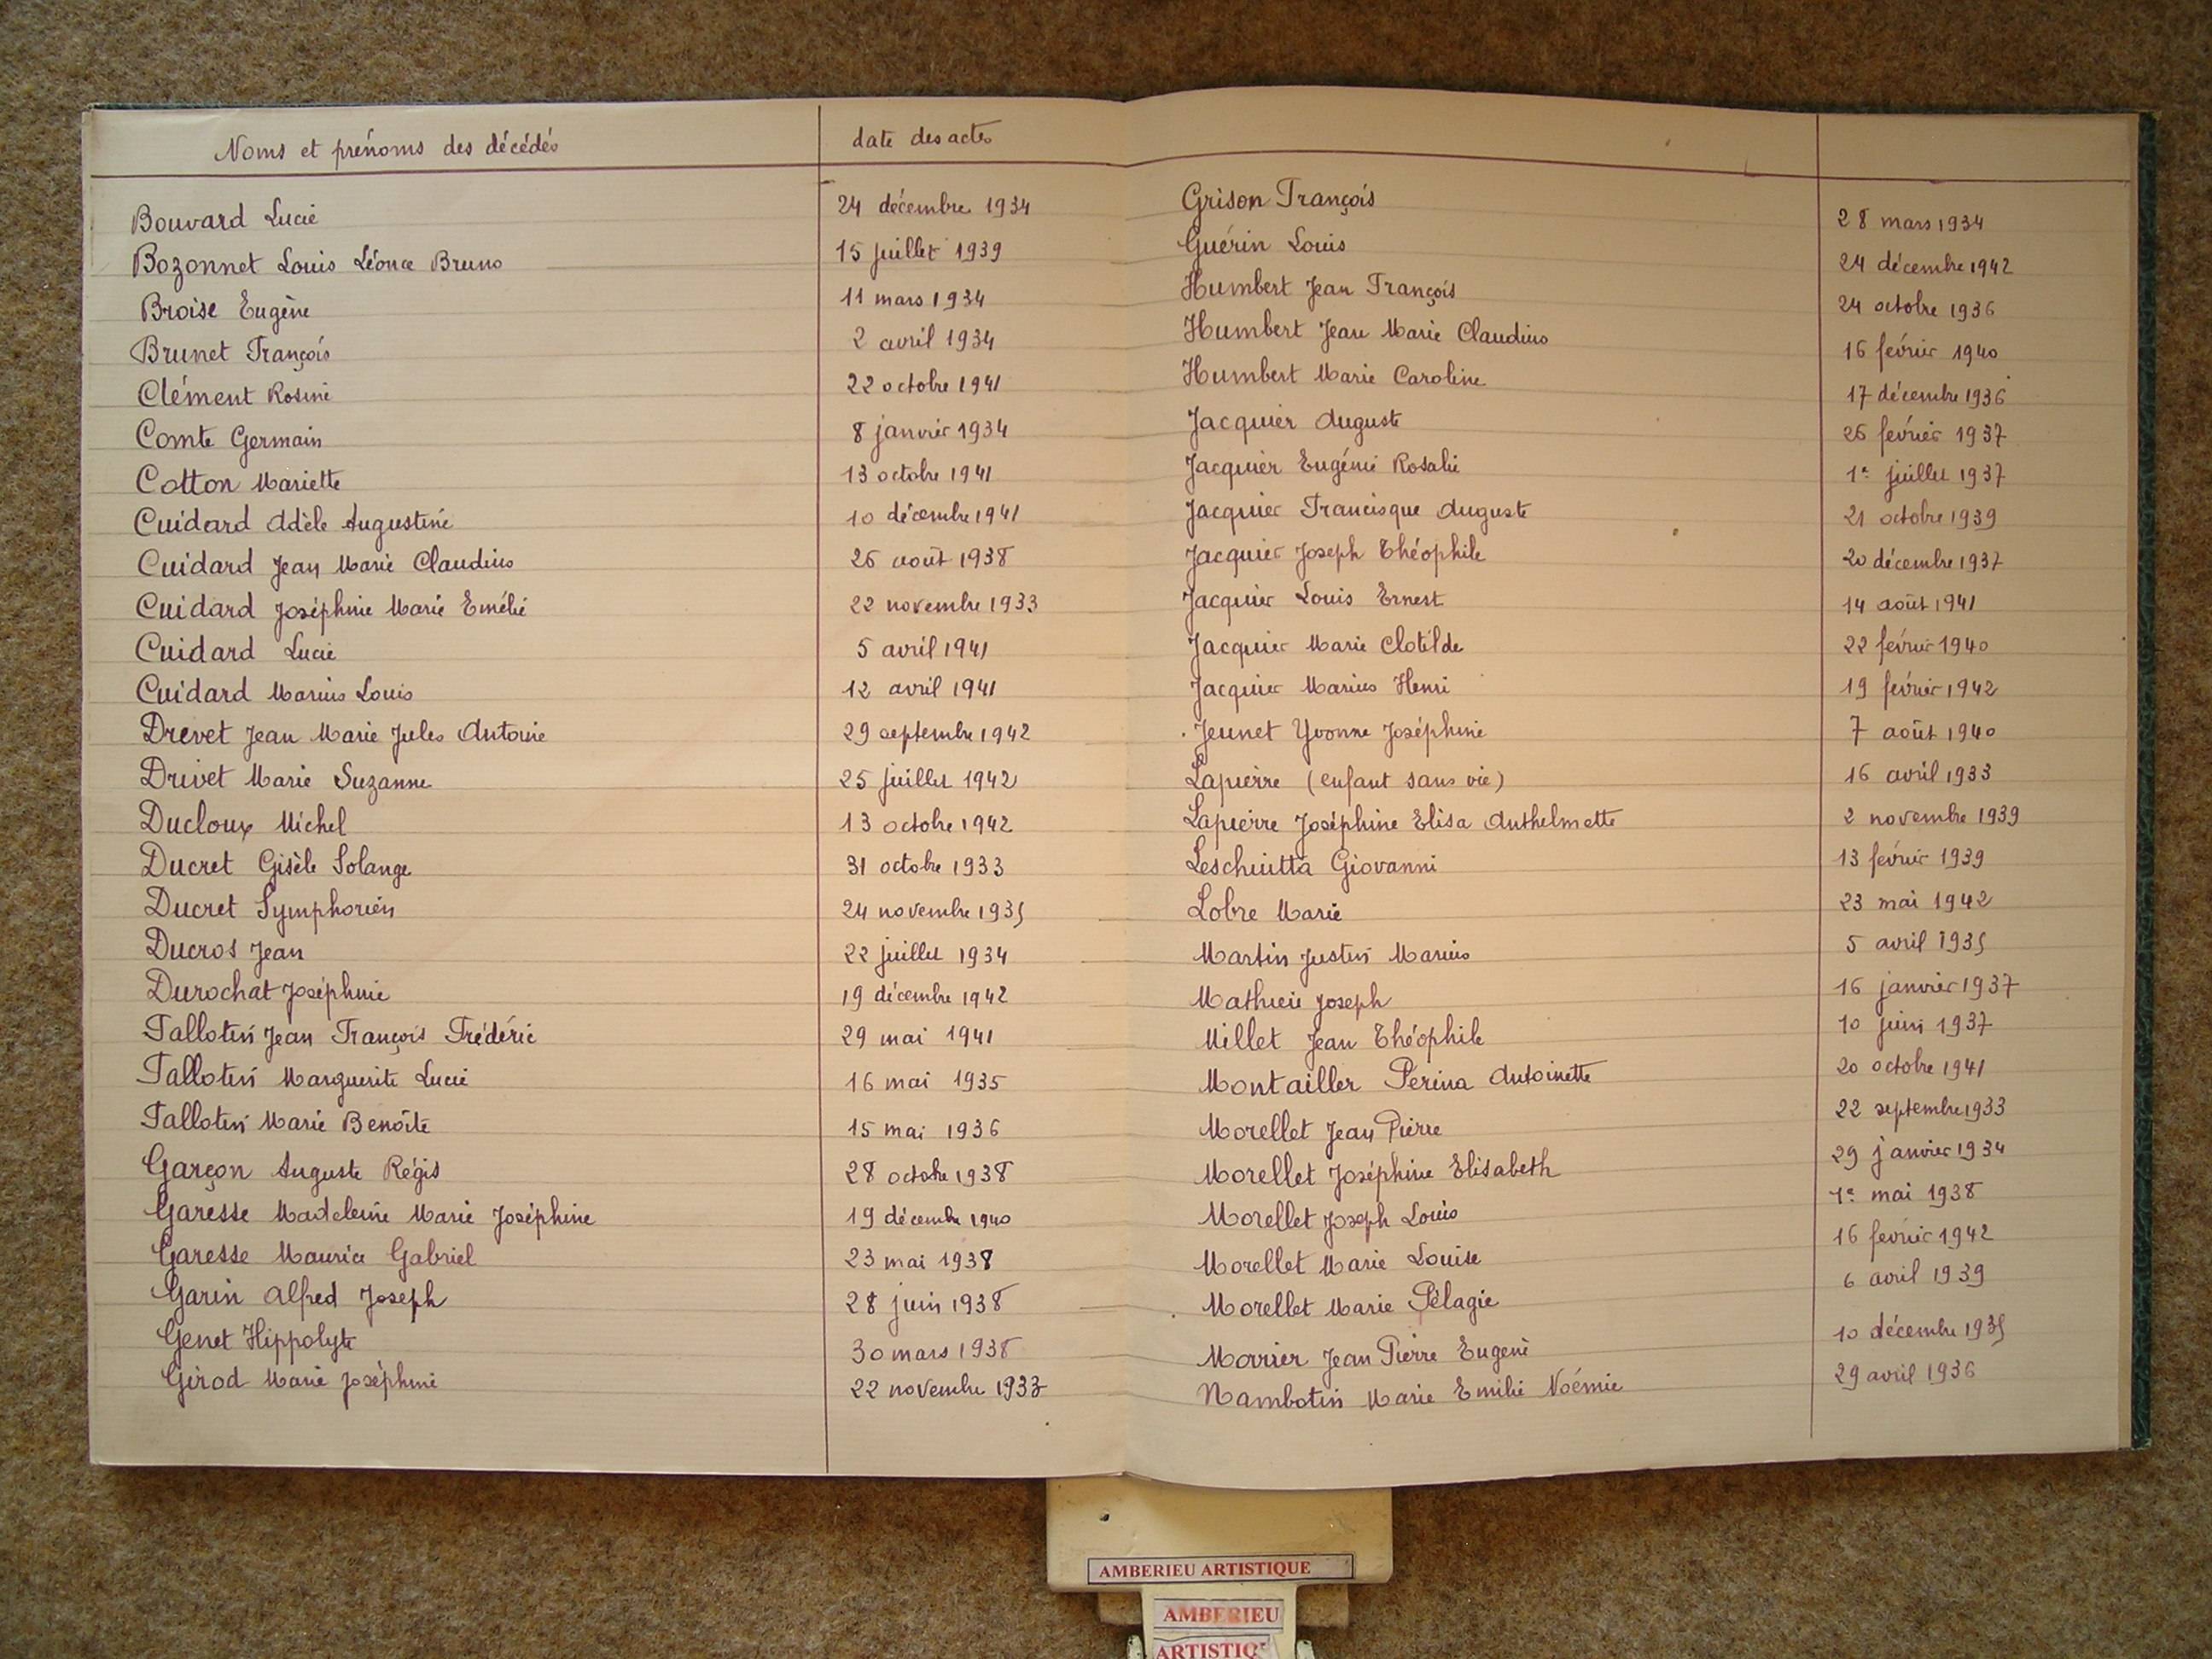 Noms et prénoms des décédés date des actes
Bouvard Lucie 24 décembre 1934
Bozonnet Louis Léonce Bruno 15 juillet 1939
Broise Eugène 11 mars 1934
Brunet François 2 avril 1934
Clément Rosine 22 octobre 1941
Comte Germain 8 janvier 1934
Cotton Mariette 13 octobre 1941
Cuidard Adèle Augustine 10 décembre 1941
Cuidard Jean Marie Claudius 26 août 1938
Cuidard Joséphine Marie Emélie 22 novembre 1933
Cuidard Lucie 5 avril 1941
Cuidard Marius Louis 12 avril 1941
Drevet Jean Marie Jules Antoine 29 septembre 1942
Drivet Marie Suzanne 25 juillet 1942
Ducloux Michel 13 octobre 1942
Ducret Gisèle Solange 31 octobre 1933
Ducret Symphorien 24 novembre 1935
Ducros Jean 22 juillet 1934
Durochat Joséphine 19 décembre 1942
Fallotin Jean François Frédéric 29 mai 1941
Fallotin Marguerite Lucie 16 mai 1935
Fallotin Marie Benoîte 15 mai 1936
Garçon Auguste Régis 28 octobre 1938
Garesse Madeleine Marie Joséphine 19 décembre 1940
Garesse Maurice Gabriel 23 mai 1938
Garin Alfred Joseph 28 juin 1938
Genet Hippolyte 30 mars 1938
Girod Marie Joséphine 22 novembre 1933
Grison François 28 mars 1934
Guérin Louis 24 décembre 1942
Humbert Jean François 24 octobre 1936
Humbert Jean Marie Claudius 16 février 1940
Humbert Marie Caroline 17 décembre 1936
Jacquier Auguste 26 février 1937
Jacquier Eugénie Rosalie 1er juillet 1937
Jacquier Francisque Auguste 21 octobre 1939
Jacquier Joseph Théophile 20 décembre 1937
Jacquier Louis Ernest 14 août 1941
Jacquier Marie Clotilde 22 février 1940
Jacquier Marius Henri 19 février 1942
Jeunet Yvonne Joséphine 7 août 1940
Lapierre (enfant sans vie) 16 avril 1933
Lapierre Joséphine Elisa Anthelmette 2 novembre 1939
Leschiutta Giovanni 13 février 1939
Lobre Marie 23 mai 1942
Martin Justin Marius 5 avril 1935
Mathieu Joseph 16 janvier 1937
Millet Jean Théophile 10 juin 1937
Montailler Périna Antoinette 20 octobre 1941
Morellet Jean Pierre 22 septembre 1933
Morellet Joséphine Elisabeth 29 janvier 1934
Morellet Joseph Louis 1er mai 1938
Morellet Marie Louise 16 février 1942
Morellet Marie Pélagie 6 avril 1939
Morrier Jean Pierre Eugène 10 décembre 1935
Nambotin Marie Emilie Noémie 29 avril 1936
AMBERIEU ARTISTIQUE
AMBERIEU